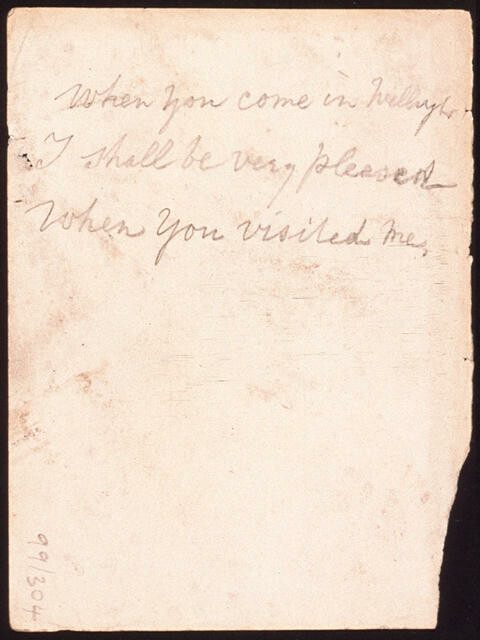 When you come in
I shall be very pleased
When you visited me,
99/304